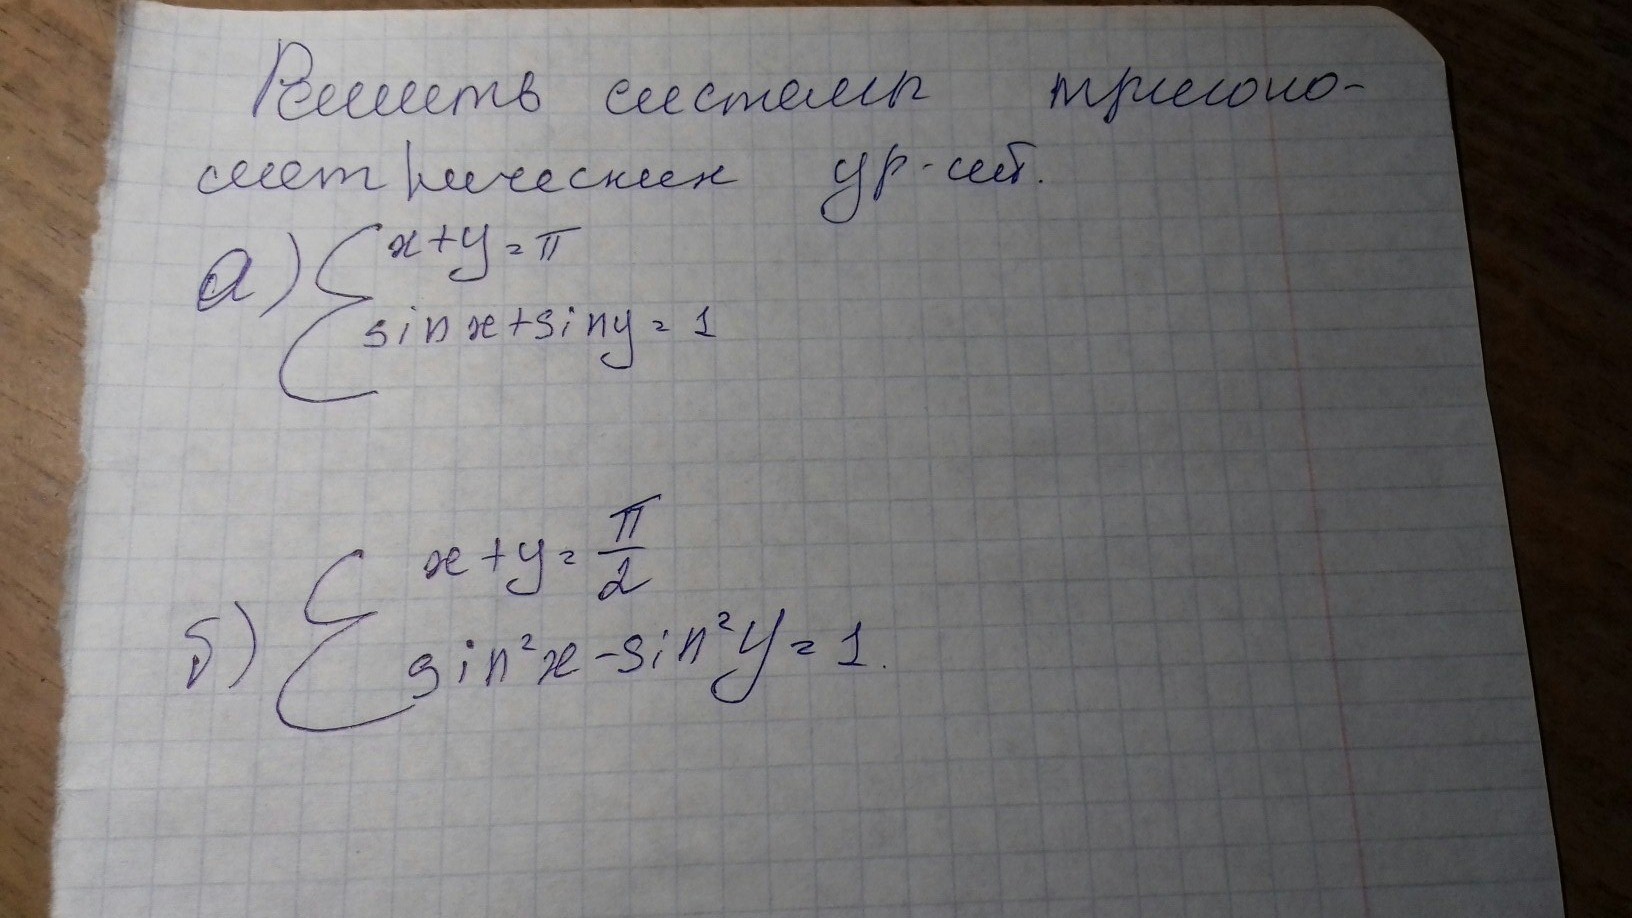 Решить системы тригоно-
метрических ур-ий.
а) { x+y=π
sin x+sin y=1
б) { x+y=π/2
sin²x-sin²y=1.